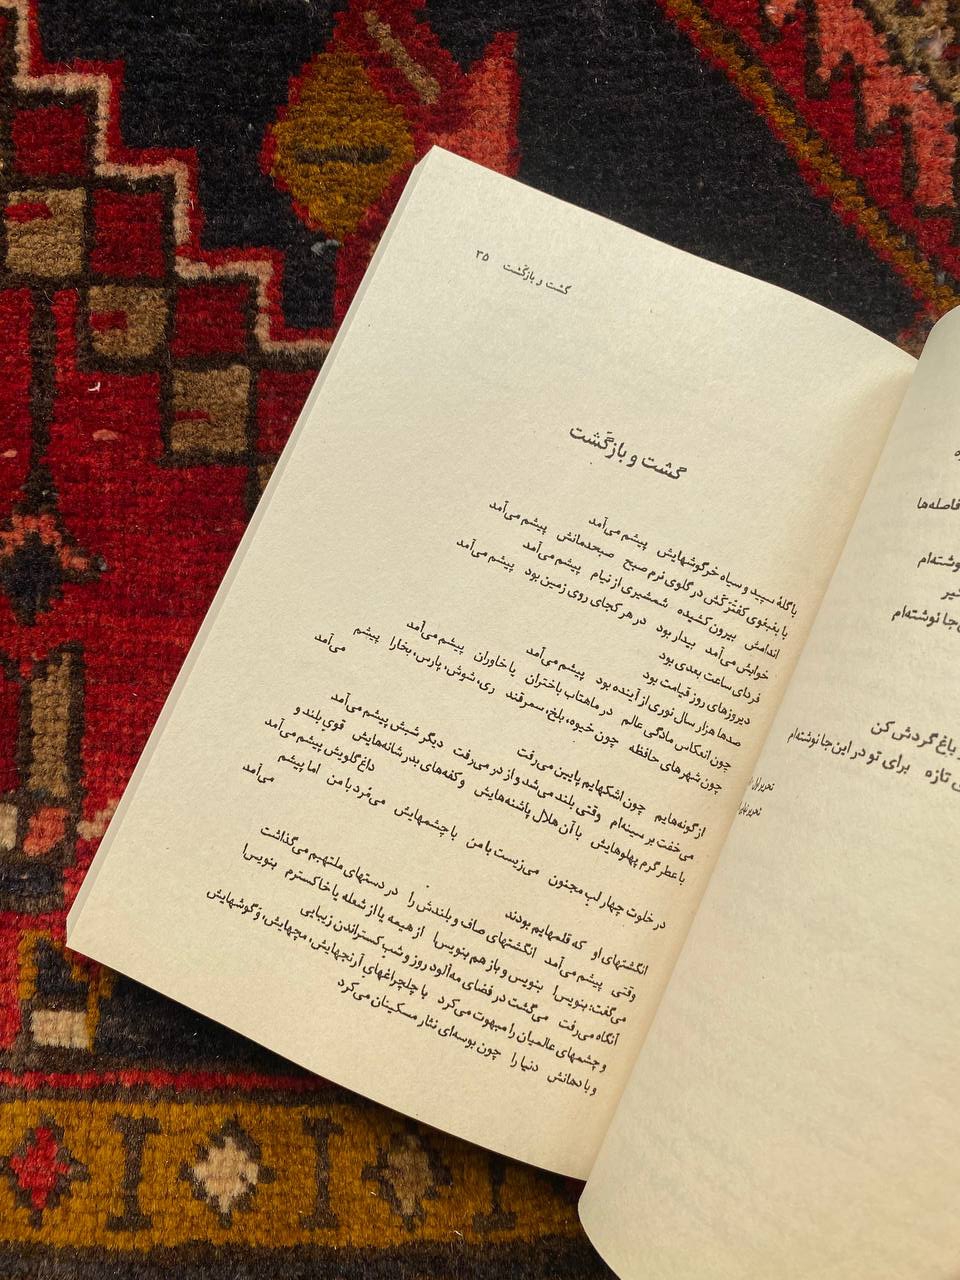 گشت و بازگشت ۳۵
گشت و بازگشت
با گلهٔ سپید و سیاه خرگوشهایش پیشم می‌آمد
با بغبغوی کفترکش در گلوی نرم صبح صبحدمانش پیشم می‌آمد
اندامش بیرون کشیده شمشیری از نیام پیشم می‌آمد
خوابش می‌آمد بیدار بود در هر کجای روی زمین بود پیشم می‌آمد
فردای ساعت بعدی بود
دیروزهای روز قیامت بود
صدها هزار سال نوری از آینده بود پیشم می‌آمد
چون انعکاس مادگی عالم در ماهتاب باختران یا خاوران پیشم می‌آمد
چون شهرهای حافظه چون خیوه، بلخ، سمرقند ری، شوش، پارس، بخارا پیشم
می‌آمد
از گونه‌هایم چون اشکهایم پایین می‌رفت
می‌خفت بر سینه‌ام وقتی بلند می‌شد و از در می‌رفت دیگر شبش پیشم می‌آمد
با عطر گرم پهلوهایش با آن هلال پاشنه‌هایش و کفه‌های بدر شانه‌هایش قوی بلند و
داغ گلویش پیشم می‌آمد
در خلوت چهار لب مجنون می‌زیست با من با چشمهایش می‌مُرد با من اما پیشم
می‌آمد
انگشتهای او که قلمهایم بودند
وقتی پیشم می‌آمد انگشتهای صاف و بلندش را در دستهای ملتهبم می‌گذاشت
می‌گفت: بنویس! بنویس و باز هم بنویس! از هیمه یا از شعله یا خاکسترم بنویس!
آنگاه می‌رفت می‌گشت در فضای مه‌آلود روز و شب گستراندن زیبایی
و چشمهای عالمیان را مبهوت می‌کرد با چلچراغهای آرنجهایش، مچهایش، و گوشهایش
و با دهانش دنیا را چون بوسه‌ای نثار مسکینان می‌کرد
فاصله‌ها
نوشته‌ام
جا نوشته‌ام
باغ گردش کن
تازه برای تو در این جا نوشته‌ام